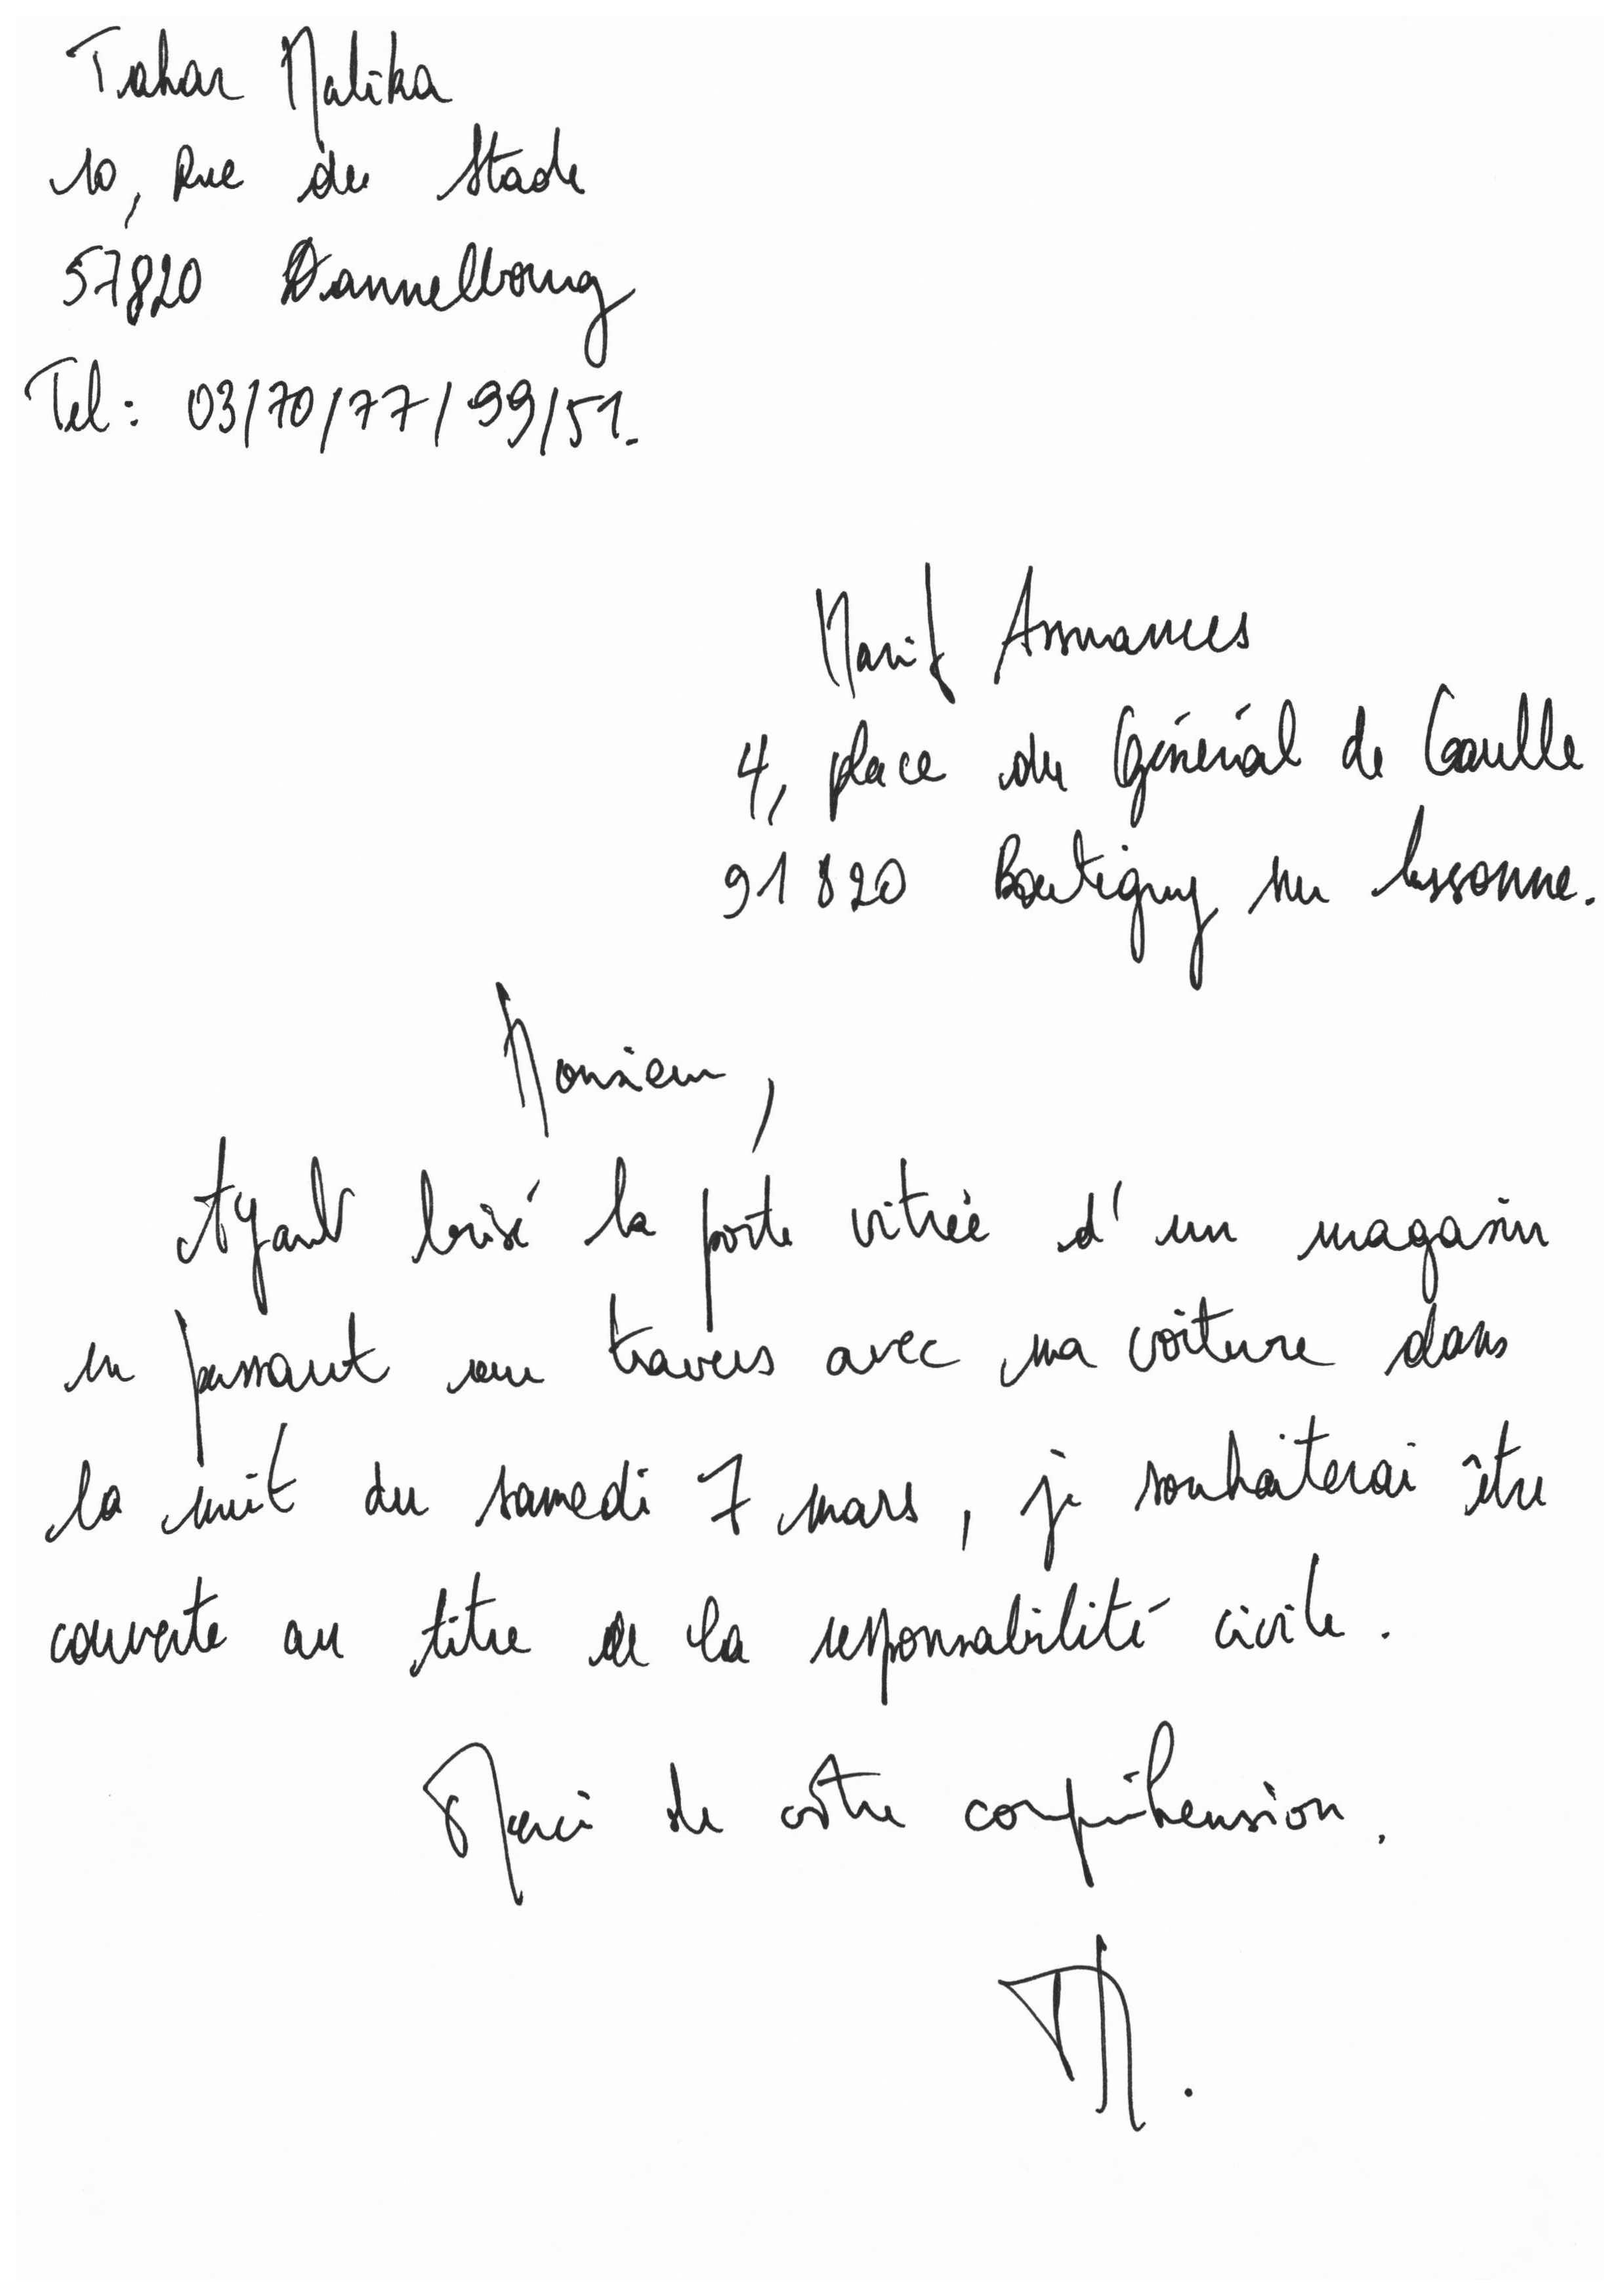 Tahar Malika
10, Rue du Stade
57820 Dannelbourg
Tel : 03/70/77/99/51.
Marif Assurances
4, place du Général de Gaulle
91820 Boutigny sur Essonne.
Monsieur,
Ayant brisé la porte vitrée d'un magasin
en passant au travers avec ma voiture dans
la nuit du samedi 7 mars, je souhaiterai être
couverte au titre de la responsabilité civile.
Merci de votre compréhension.
TM.